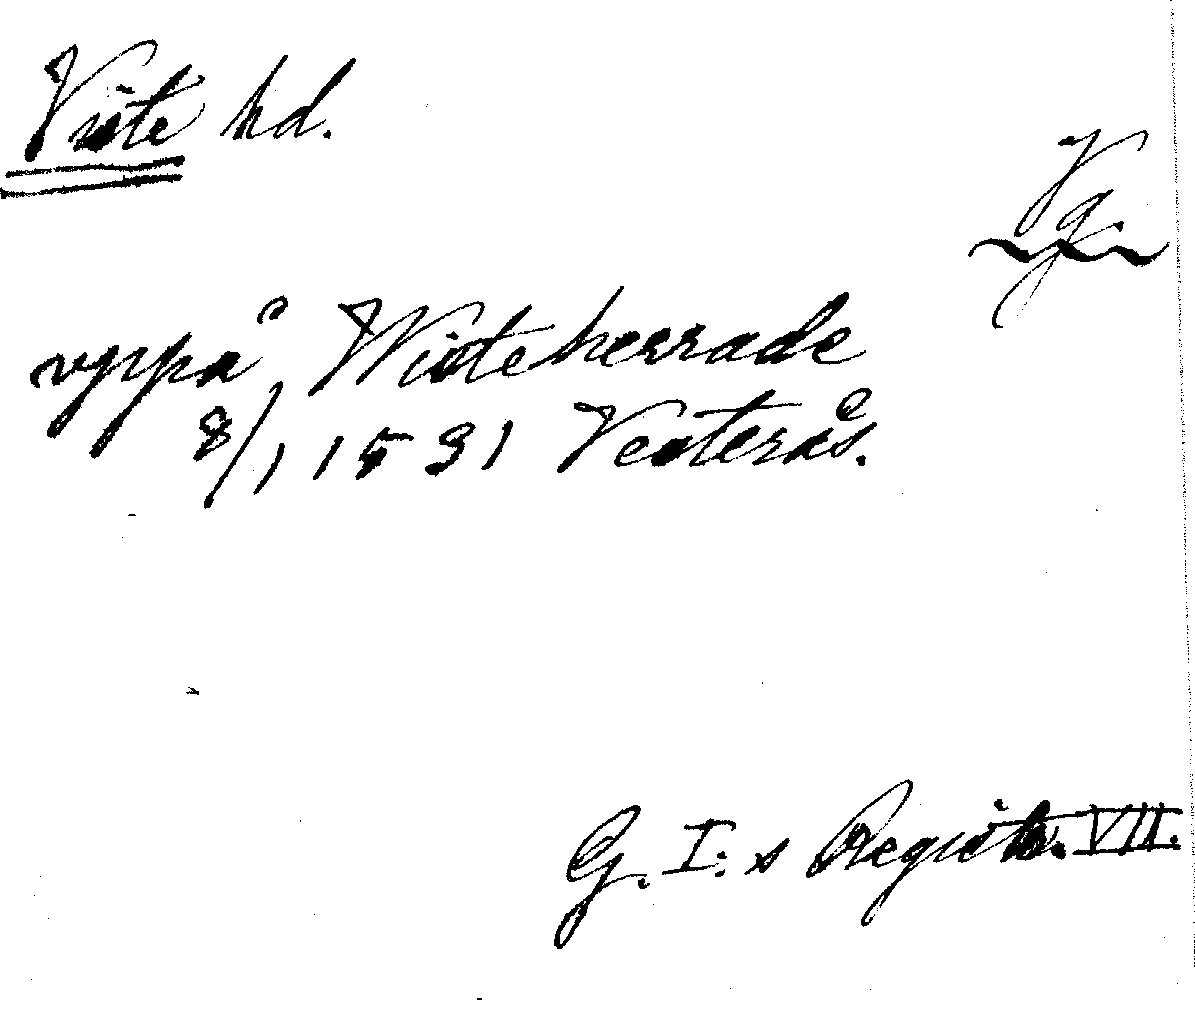 Viste hd.
Vg
vppå Wisteherrade
8/1 1531 Vesterås.
G. I:s Registr. VII.